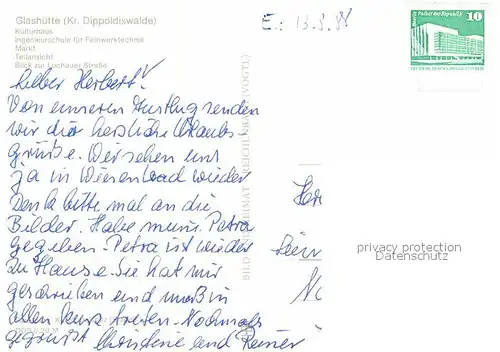 Glashütte (Kr. Dippoldiswalde)
Kulturhaus
Ingenieurschule für Feinwerktechnik
Markt
Teilansicht
Blick zur Luchauer Straße
E.: 13.8.88
Palast der Republik
10
Lieber Herbert!
Von unseren Ausflug senden
wir dir herzliche Urlaubs-
grüße. Wir sehen uns
ja in Wiesenbad wieder
Denk bitte mal an die
Bilder. Habe meine Petra
gegeben. Petra ist wieder
zu Hause. Sie hat mir
geschrieben und muß in
allen kurz treten. Nochmals
gegrüßt und Reiner
BILD UND HEIMAT REICHENBACH (VOGTL)
privacy protection
Datenschutz